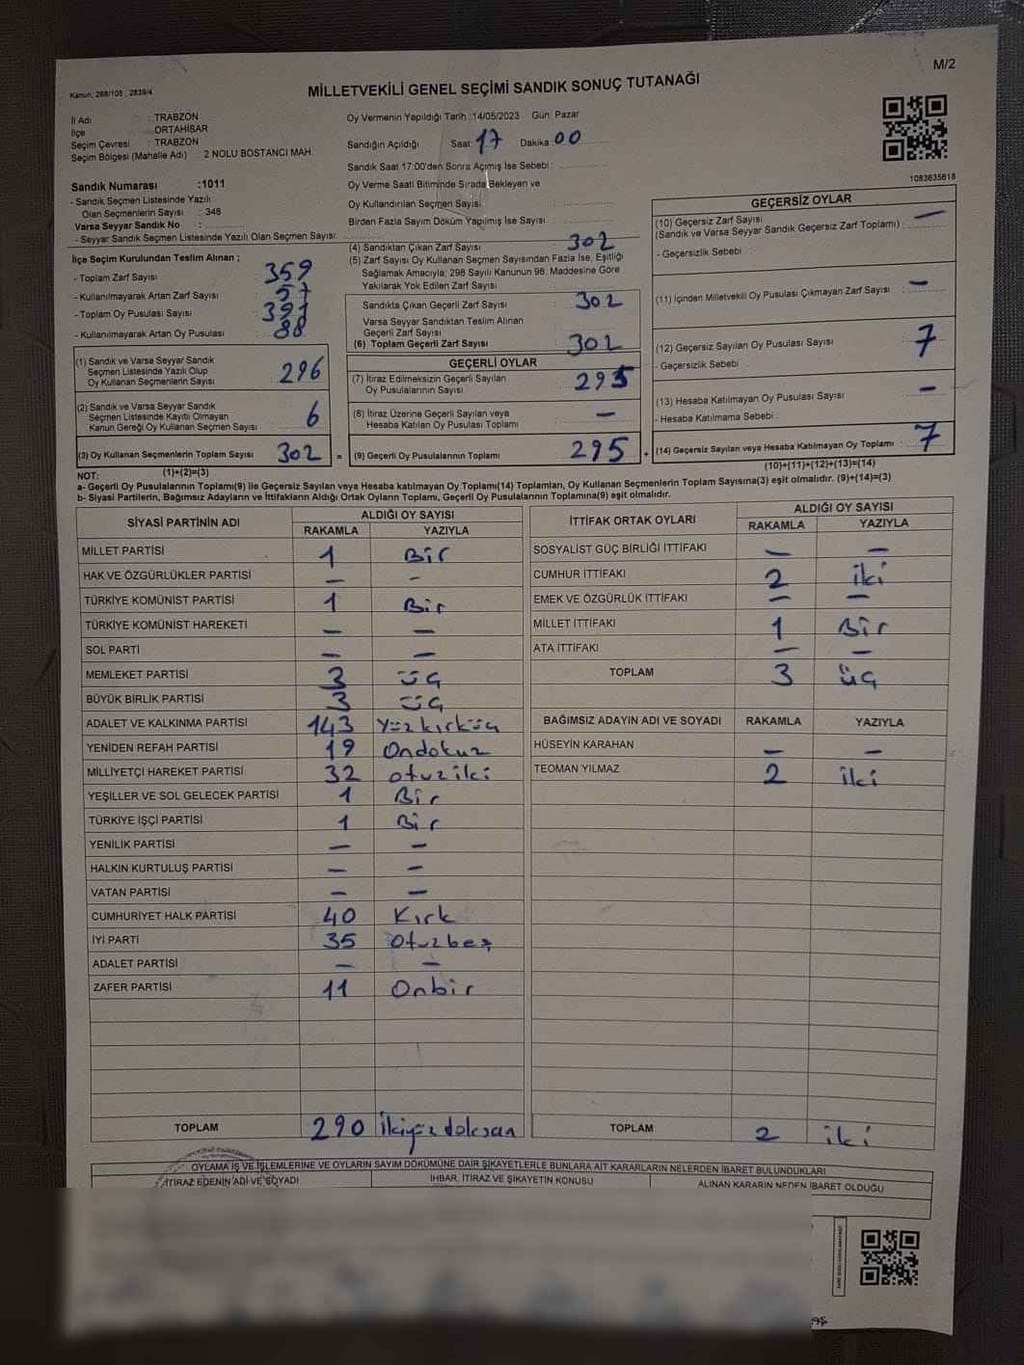 M/2
Kanun: 298/105 ; 2839/4
MİLLETVEKİLİ GENEL SEÇİMİ SANDIK SONUÇ TUTANAĞI
İl Adı : TRABZON
İlçe : ORTAHİSAR
Seçim Çevresi : TRABZON
Seçim Bölgesi (Mahalle Adı) 2 NOLU BOSTANCI MAH.
Oy Vermenin Yapıldığı Tarih :14/05/2023 Gün: Pazar
Sandığın Açıldığı Saat: 17 Dakika: 00
Sandık Saat 17:00'den Sonra Açmış İse Sebebi :
Oy Verme Saati Bitiminde Sırada Bekleyen ve
Oy Kullandırılan Seçmen Sayısı :
Birden Fazla Sayım Döküm Yapılmış İse Sayısı :
1083635618
Sandık Numarası :1011
- Sandık Seçmen Listesinde Yazılı
Olan Seçmenlerin Sayısı : 346
Varsa Seyyar Sandık No :
- Seyyar Sandık Seçmen Listesinde Yazılı Olan Seçmen Sayısı:
İlçe Seçim Kurulundan Teslim Alınan ;
- Toplam Zarf Sayısı 359
- Kullanılmayarak Artan Zarf Sayısı 57
- Toplam Oy Pusulası Sayısı
- Kullanılmayarak Artan Oy Pusulası 88
(1) Sandık ve Varsa Seyyar Sandık
Seçmen Listesinde Yazılı Olup
Oy Kullanan Seçmenlerin Sayısı 296
(2) Sandık ve Varsa Seyyar Sandık
Seçmen Listesinde Kayıtlı Olmayan
Kanun Gereği Oy Kullanan Seçmen Sayısı 6
(3) Oy Kullanan Seçmenlerin Toplam Sayısı 302 =
(1)+(2)=(3)
(4) Sandıktan Çıkan Zarf Sayısı 302
(5) Zarf Sayısı Oy Kullanan Seçmen Sayısından Fazla İse, Eşitliği
Sağlamak Amacıyla; 298 Sayılı Kanunun 98. Maddesine Göre
Yakılarak Yok Edilen Zarf Sayısı
Sandıkta Çıkan Geçerli Zarf Sayısı 302
Varsa Seyyar Sandıktan Teslim Alınan
Geçerli Zarf Sayısı
(6) Toplam Geçerli Zarf Sayısı 302
GEÇERLİ OYLAR
(7) İtiraz Edilmeksizin Geçerli Sayılan
Oy Pusulalarının Sayısı 295
(8) İtiraz Üzerine Geçerli Sayılan veya
Hesaba Katılan Oy Pusulası Toplamı —
(9) Geçerli Oy Pusulalarının Toplamı 295 +
GEÇERSİZ OYLAR
(10) Geçersiz Zarf Sayısı
(Sandık ve Varsa Seyyar Sandık Geçersiz Zarf Toplamı) : —
- Geçersizlik Sebebi :
(11) İçinden Milletvekili Oy Pusulası Çıkmayan Zarf Sayısı —
(12) Geçersiz Sayılan Oy Pusulası Sayısı 7
- Geçersizlik Sebebi :
(13) Hesaba Katılmayan Oy Pusulası Sayısı —
- Hesaba Katılmama Sebebi :
(14) Geçersiz Sayılan veya Hesaba Katılmayan Oy Toplamı : 7
(10)+(11)+(12)+(13)=(14)
NOT:
a- Geçerli Oy Pusulalarının Toplamı(9) ile Geçersiz Sayılan veya Hesaba katılmayan Oy Toplamı(14) Toplamları, Oy Kullanan Seçmenlerin Toplam Sayısına(3) eşit olmalıdır. (9)+(14)=(3)
b- Siyasi Partilerin, Bağımsız Adayların ve İttifakların Aldığı Ortak Oyların Toplamı, Geçerli Oy Pusulalarının Toplamına(9) eşit olmalıdır.
SİYASİ PARTİNİN ADI ALDIĞI OY SAYISI
RAKAMLA YAZIYLA
MİLLET PARTİSİ 1 Bir
HAK VE ÖZGÜRLÜKLER PARTİSİ — -
TÜRKİYE KOMÜNİST PARTİSİ 1 Bir
TÜRKİYE KOMÜNİST HAREKETİ — —
SOL PARTİ — —
MEMLEKET PARTİSİ 3 üç
BÜYÜK BİRLİK PARTİSİ 3 üç
ADALET VE KALKINMA PARTİSİ 143 Yüzkırküç
YENİDEN REFAH PARTİSİ 19 Ondokuz
MİLLİYETÇİ HAREKET PARTİSİ 32 otuziki
YEŞİLLER VE SOL GELECEK PARTİSİ 1 Bir
TÜRKİYE İŞÇİ PARTİSİ 1 Bir
YENİLİK PARTİSİ — —
HALKIN KURTULUŞ PARTİSİ — —
VATAN PARTİSİ — —
CUMHURİYET HALK PARTİSİ 40 Kırk
İYİ PARTİ 35 Otuzbeş
ADALET PARTİSİ — —
ZAFER PARTİSİ 11 Onbir
TOPLAM 290 İkiyüzdoksan
İTTİFAK ORTAK OYLARI ALDIĞI OY SAYISI
RAKAMLA YAZIYLA
SOSYALİST GÜÇ BİRLİĞİ İTTİFAKI — —
CUMHUR İTTİFAKI 2 iki
EMEK VE ÖZGÜRLÜK İTTİFAKI — —
MİLLET İTTİFAKI 1 Bir
ATA İTTİFAKI — —
TOPLAM 3 üç
BAĞIMSIZ ADAYIN ADI VE SOYADI RAKAMLA YAZIYLA
HÜSEYİN KARAHAN — —
TEOMAN YILMAZ 2 iki
TOPLAM 2 iki
OYLAMA İŞ VE İŞLEMLERİNE VE OYLARIN SAYIM DÖKÜMÜNE DAİR ŞİKAYETLERLE BUNLARA AİT KARARLARIN NELERDEN İBARET BULUNDUKLARI
İTİRAZ EDENİN ADI VE SOYADI İHBAR, İTİRAZ VE ŞİKAYETİN KONUSU ALINAN KARARIN NEDEN İBARET OLDUĞU